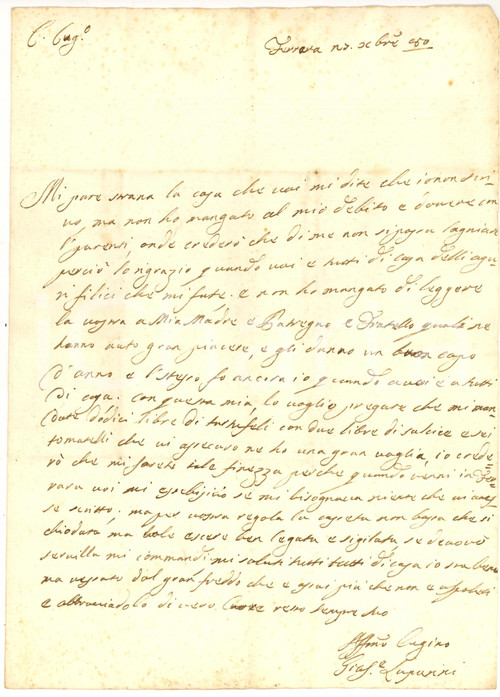 C. Cug.o
Ferrara 27. Xbre 850
Mi pare strana la cosa che voi mi dite che io non scri-
vo ma non ho mangato al mio debito e dovere con
l'parenti, onde crederò che di me non si posa lagniare
perciò lo ringrazio quando voi e tutti di casa delli agu-
ri filici che mi fate. e non ho mangato di leggere
la vostra a Mia Madre e Patregno e Fratello quali ne
hanno auto gran piacere, e gli danno un buon capo
d'anno e l'steso fo ancora io quando a voi e a tutti
di casa. con questa mia, lo voglio pregare che mi man
date dodici libre di tartufeli con due libre di salcice e sei
tomarelli che vi asecuro ne ho una gran voglia, io crede=
rò che mi farete tale finezza perche quando venni in Fe=
rara voi mi esebisivo se mi bisogniava niente che vi aves
se scritto. ma per vostra regola la caseta non basa che si
chiodata, ma vole esere ben legata e sigilata se devo
servilla mi commandi, mi saluti tutti tutti di casa io sto bene
ma vessato dal gran freddo che e asai più che non e a Spoleti
e abbraciadolo di vero Cuore resto sempre suo
Affmo Cugino
Gius.e Luparini